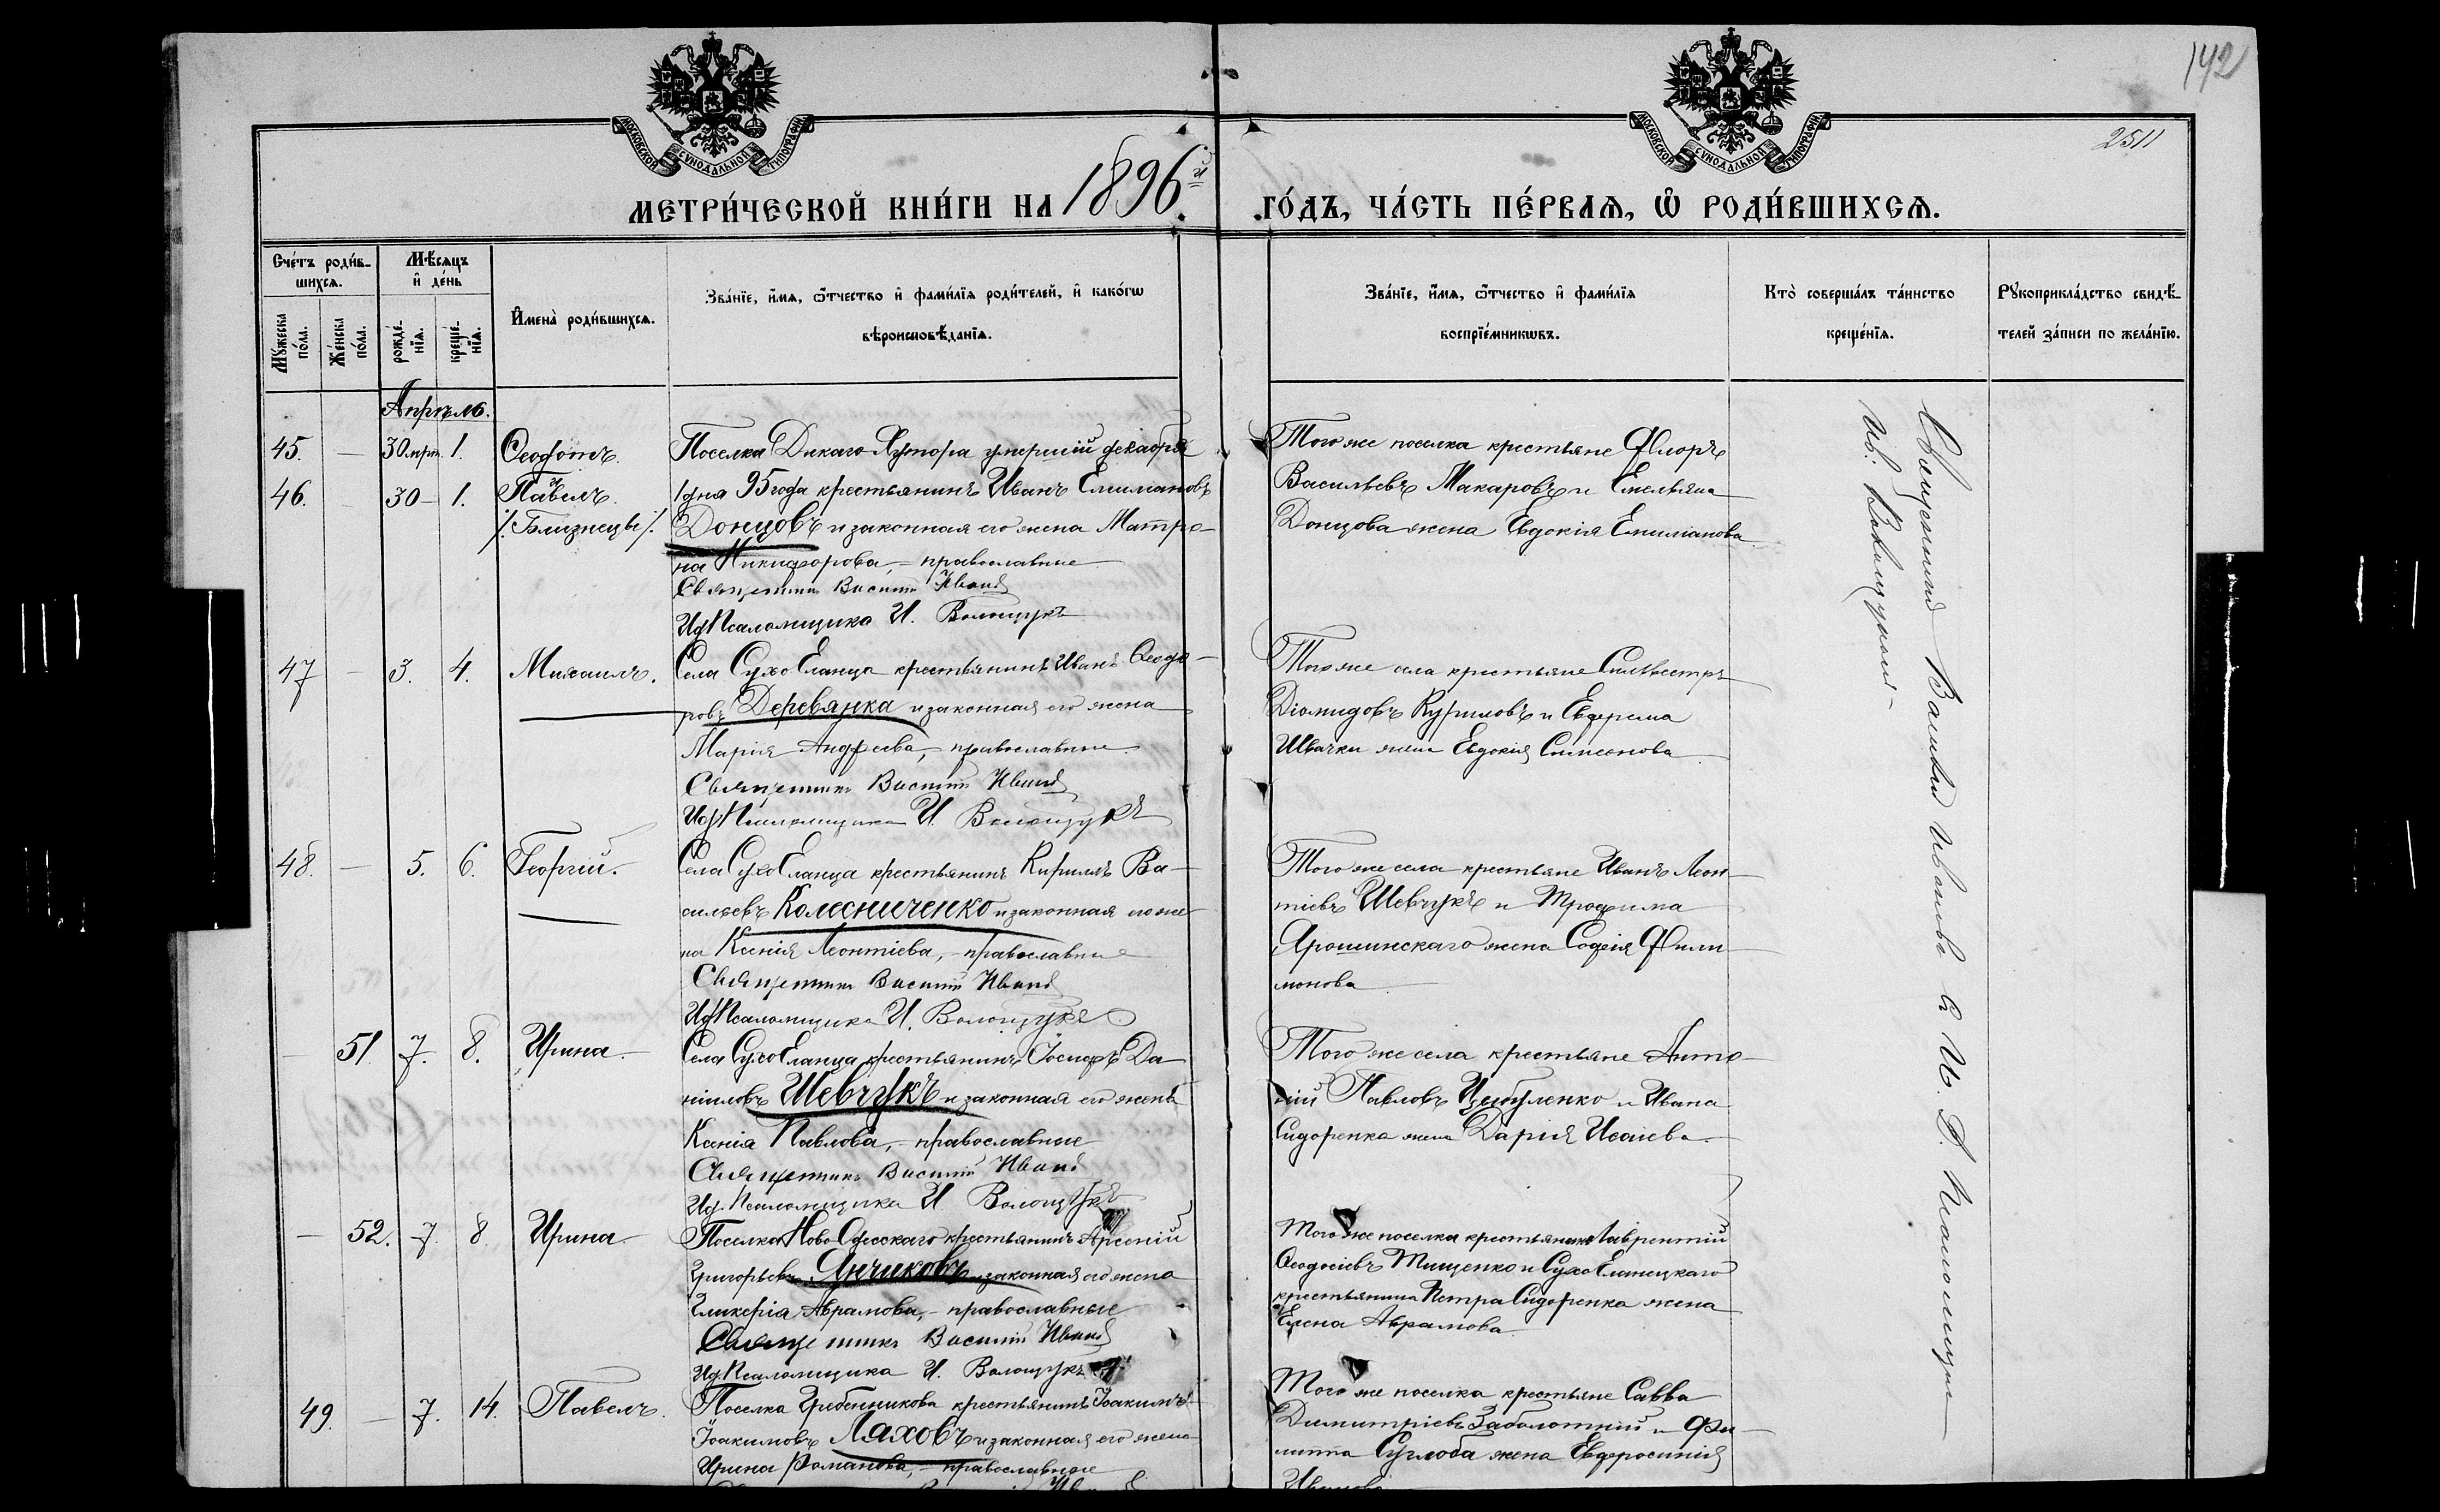 142
МОСКОВСКОЙ СѴНОДАЛЬНОЙ ТИПОГРАФІИ
МОСКОВСКОЙ СѴНОДАЛЬНОЙ ТИПОГРАФІИ
2511
МЕТРИ́ЧЕСКОЙ КНИ́ГИ НА 1896.й
ГО́ДЪ, ЧА́СТЬ ПЕ́РВАѦ, Ѡ҆ РОДИ́ВШИХСѦ.
Сче́тъ роди́в-
шихсѧ.
Мѣ́сѧцъ
и҆ де́нь
Мꙋ́жеска
по́ла.
Же́нска
по́ла.
рожде́-
нїѧ.
креще́-
нїѧ.
И҆мена̀ роди́вшихсѧ.
Зва́нїе, и҆́мѧ, ѻ҆́тчество и҆ фами́лїѧ роди́телей, и҆ како́гѡ
вѣроисповѣ́данїѧ.
Зва́нїе, и҆́мѧ, ѻ҆́тчество и҆ фами́лїѧ
воспрїе́мникѡвъ.
Кто̀ соверша́лъ та́инство
креще́нїѧ.
Рꙋкоприкла́дство свидѣ́-
телей за́писи по жела́нїю.
Апрѣль.
45. — 30 мрт. 1. Ѳеодотъ. Поселка Дикаго Хутора умершій декабря
46. 30 — 1. Павелъ. 1 дня 95 года крестьянинъ Иванъ Емиліановъ
/. Близнецы /. Донцовъ и законная его жена Матро-
на Никифорова, — православные
Священникъ Василій Ивановъ
Ид Псаломщика И. Волощукъ
Того же поселка крестьяне Флоръ
Васильевъ Макаровъ и Емельяна
Донцова жена Евдокія Емиліанова
47 — 3. 4. Михаилъ. Села Сухо Еланца крестьянинъ Иванъ Ѳеодо-
ровъ Деревянка и законная его жена
Марія Андреева, — православные
Священникъ Василій Ивановъ
Ид Псаломщика И. Волощукъ
Того же села крестьяне Силвестръ
Діомидовъ Куриловъ и Евфрема
Швачки жена Евдокія Симеонова
48. — 5. 6. Георгій. Села Сухо Еланца крестьянинъ Кириллъ Ва-
сильевъ Колесниченко и законная его же-
на Ксенія Леонтіева, — православные
Священникъ Василій Ивановъ
Ид Псаломщика И. Волощукъ
Того же села крестьяне Иванъ Леон-
тіевъ Шевчукъ и Трофима
Ярошинскаго жена Софія Фили-
монова
— 51 7. 8. Ирина. Села Сухо Еланца крестьянинъ Іосифъ Да-
ніиловъ Шевчукъ и законная его жена
Ксенія Павлова, — православные
Священникъ Василій Ивановъ
Ид. Псаломщика И Волощукъ
Того же села крестьяне Анто-
ній Павловъ Цыбуленко и Ивана
Сидоренка жена Дарія Исаіева.
— 52. 7. 8 Ирина Поселка Ново Одесскаго крестьянинъ Арсеній
Григорьевъ Янчиковъ и законная его жена
Гликерія Аврамова, — православные
Священникъ Василій Ивановъ
Ид. Псаломщика И. Волощукъ
Того же поселка крестьянинъ Лаврентій
Ѳеодосіевъ Тищенко и Сухо Еланецкаго
крестьянина Петра Сидоренка жена
Елена Аврамова
49. — 7. 14. Павелъ. Поселка Гребенникова крестьянинъ Іоакимъ
Іоакимовъ Ляховъ и законная его жена
Ирина Романова, — православные
Того же поселка крестьяне Савва
Димитріевъ Заболотній и Фи-
липпа Суглоба жена Евфросинія
Священникъ Василій Ивановъ и И. Д. Псаломщика
Ив. Волощукъ